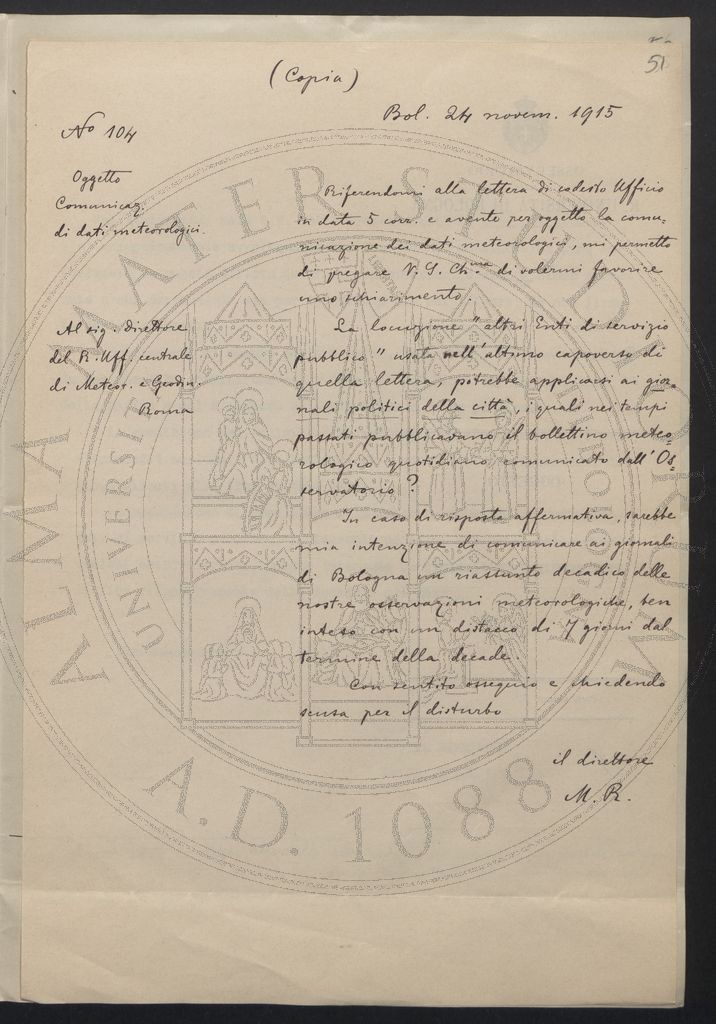 51
(Copia)
Bol. 24 novem. 1915
No 104
Oggetto
Comunicaz.
di dati meteorologici.
Al sig. direttore
del R. Uff. centrale
di Meteor. e Geodin.
Roma
Riferendomi alla lettera di codesto Ufficio
in data 5 corr. e avente per oggetto la comu-
nicazione dei dati meteorologici, mi permetto
di pregare V. S. Ch.ma di volermi favorire
uno schiarimento.
La locuzione "altri Enti di servizio
pubblico" usata nell'ultimo capoverso di
quella lettera, potrebbe applicarsi ai gior-
nali politici della città, i quali nei tempi
passati pubblicavano il bollettino meteo-
rologico quotidiano comunicato dall'Os-
servatorio?
In caso di risposta affermativa, sarebbe
mia intenzione di comunicare ai giornali
di Bologna un riassunto decadico delle
nostre osservazioni meteorologiche, ben
inteso con un distacco di 7 giorni dal
termine della decade.
Con sentito ossequio e chiedendo
scusa per il disturbo
il direttore
M. R.
ALMA MATER STUDIORUM
UNIVERSIT
A.D. 1088